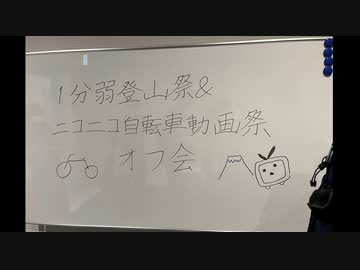 1分弱登山祭&
ニコニコ自転車動画祭
オフ会